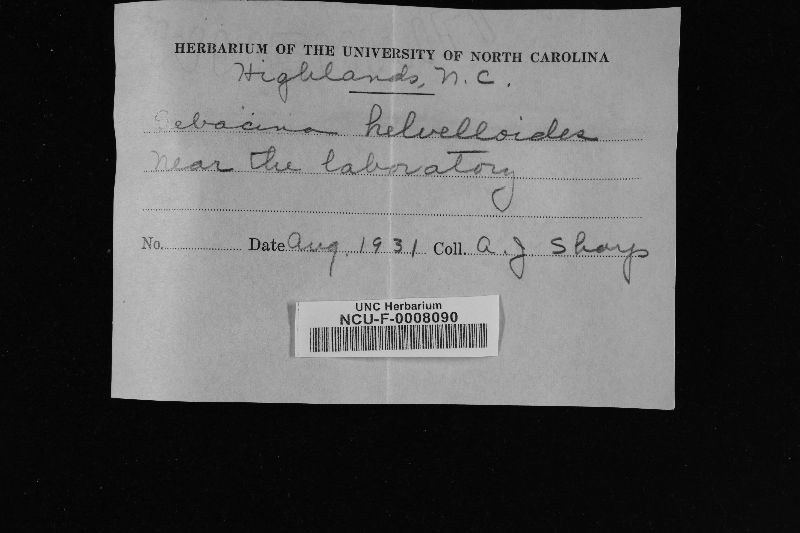 HERBARIUM OF THE UNIVERSITY OF NORTH CAROLINA
Highlands, N.C.
Sebacina helvelloides
Near the laboratory
No. Date Aug. 1931 Coll. A. J Sharp
UNC Herbarium
NCU-F-0008090